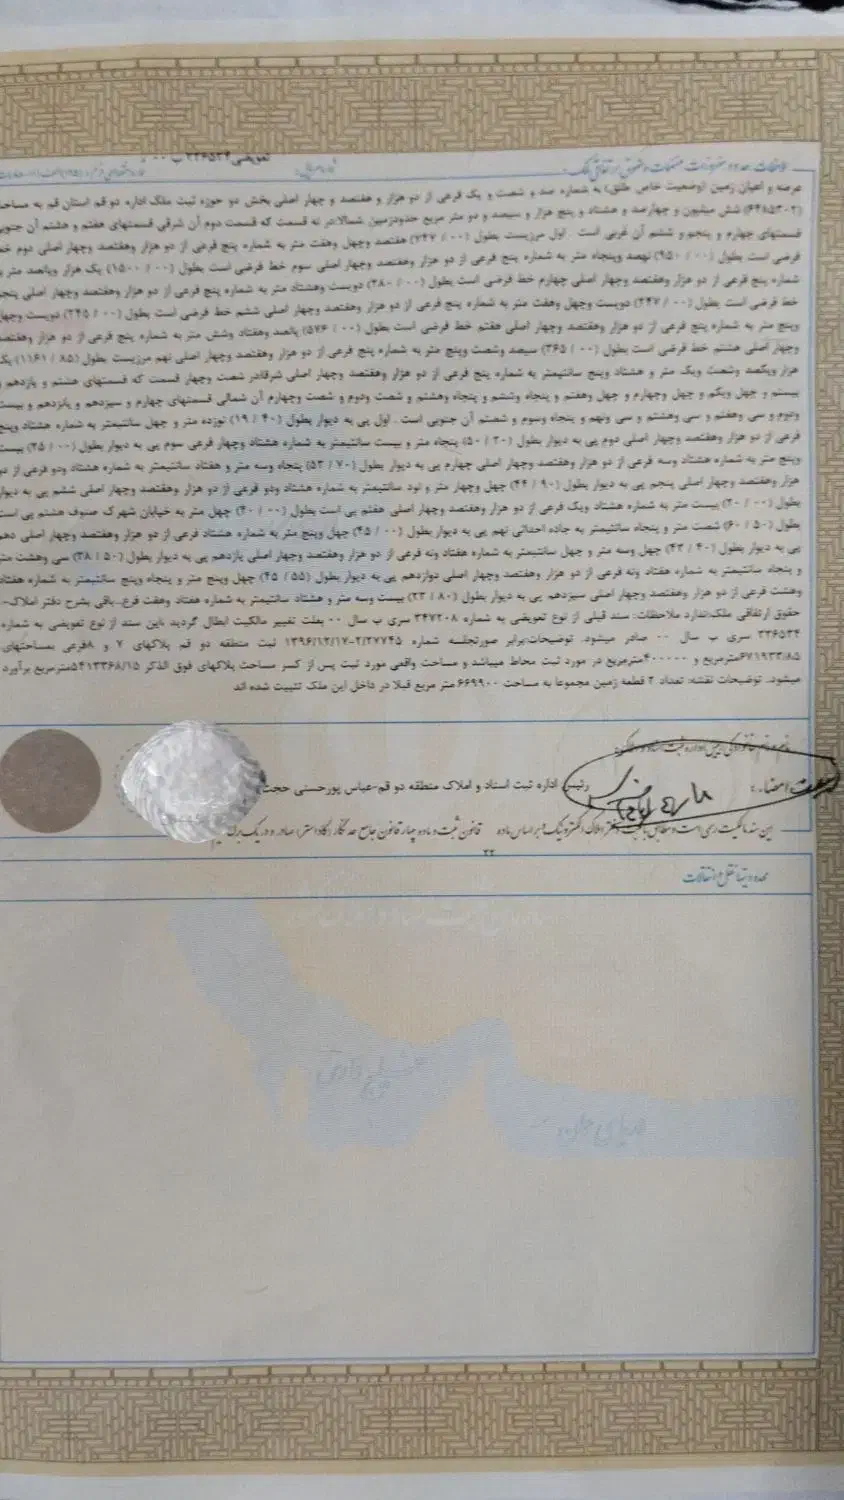 تعویضی ۳۳۶۵۳۴ ب ۰۰
عرصه و اعیان زمین (وضعیت خاص طلق) به شماره صد و شصت و یک فرعی از دو هزار و هفتصد و چهار اصلی بخش دو حوزه ثبت ملک اداره دو قم استان قم به مساحت
(۶۴۸۵۳۰۲) شش میلیون و چهارصد و هشتاد و پنج هزار و سیصد و دو متر مربع حدود زمین شمالا:در نه قسمت که قسمت دوم آن شرقی قسمتهای هفتم و هشتم آن جنوبی
قسمتهای چهارم و پنجم و ششم آن غربی است . اول مرزیست بطول (۰۰ / ۷۴۷) هفتصد وچهل وهفت متر به شماره پنج فرعی از دو هزار وهفتصد وچهار اصلی دوم خط
فرضی است بطول (۰۰ / ۹۵۰) نهصد وپنجاه متر به شماره پنج فرعی از دو هزار وهفتصد وچهار اصلی سوم خط فرضی است بطول (۰۰ / ۱۵۰۰) یک هزار وپانصد متر به
شماره پنج فرعی از دو هزار وهفتصد وچهار اصلی چهارم خط فرضی است بطول (۰۰ / ۲۸۰) دویست وهشتاد متر به شماره پنج فرعی از دو هزار وهفتصد وچهار اصلی پنجم
خط فرضی است بطول (۰۰ / ۲۴۷) دویست وچهل وهفت متر به شماره پنج فرعی از دو هزار وهفتصد وچهار اصلی ششم خط فرضی است بطول (۰۰ / ۲۴۵) دویست وچهل
وپنج متر به شماره پنج فرعی از دو هزار وهفتصد وچهار اصلی هفتم خط فرضی است بطول (۰۰ / ۵۷۶) پانصد وهفتاد وشش متر به شماره پنج فرعی از دو هزار وهفتصد
وچهار اصلی هشتم خط فرضی است بطول (۰۰ / ۳۶۵) سیصد وشصت وپنج متر به شماره پنج فرعی از دو هزار وهفتصد وچهار اصلی نهم مرزیست بطول (۸۵ / ۱۱۶۱) یک
هزار ویکصد وشصت ویک متر و هشتاد وپنج سانتیمتر به شماره پنج فرعی از دو هزار وهفتصد وچهار اصلی شرقا:در شصت وچهار قسمت که قسمتهای هشتم و یازدهم و
بیستم و چهل ویکم و چهل وچهارم و چهل وهفتم و پنجاه وششم و پنجاه وهشتم و شصت ودوم و شصت وچهارم آن شمالی قسمتهای چهارم و سیزدهم و پانزدهم و بیست
ودوم و سی وهفتم و سی وهشتم و سی ونهم و پنجاه وسوم و شصتم آن جنوبی است . اول پی به دیوار بطول (۴۰ / ۱۹) نوزده متر و چهل سانتیمتر به شماره هشتاد وپنج
فرعی از دو هزار وهفتصد وچهار اصلی دوم پی به دیوار بطول (۲۰ / ۵۰) پنجاه متر و بیست سانتیمتر به شماره هشتاد وچهار فرعی سوم پی به دیوار بطول (۰۰ / ۲۵) بیست
وپنج متر به شماره هشتاد وسه فرعی از دو هزار وهفتصد وچهار اصلی چهارم پی به دیوار بطول (۷۰ / ۵۳) پنجاه وسه متر و هفتاد سانتیمتر به شماره هشتاد ودو فرعی از دو
هزار وهفتصد وچهار اصلی پنجم پی به دیوار بطول (۹۰ / ۴۴) چهل وچهار متر و نود سانتیمتر به شماره هشتاد ودو فرعی از دو هزار وهفتصد وچهار اصلی ششم پی به دیوار
بطول (۰۰ / ۲۰) بیست متر به شماره هشتاد ویک فرعی از دو هزار وهفتصد وچهار اصلی هفتم پی است بطول (۰۰ / ۴۰) چهل متر به خیابان شهرک صنوف هشتم پی است
بطول (۵۰ / ۶۰) شصت متر و پنجاه سانتیمتر به جاده احداثی نهم پی به دیوار بطول (۰۰ / ۴۵) چهل وپنج متر به شماره هشتاد فرعی از دو هزار وهفتصد وچهار اصلی دهم
پی به دیوار بطول (۴۰ / ۴۳) چهل وسه متر و چهل سانتیمتر به شماره هفتاد ونه فرعی از دو هزار وهفتصد وچهار اصلی یازدهم پی به دیوار بطول (۵۰ / ۳۸) سی وهشت متر
و پنجاه سانتیمتر به شماره هفتاد ونه فرعی از دو هزار وهفتصد وچهار اصلی دوازدهم پی به دیوار بطول (۵۵ / ۴۵) چهل وپنج متر و پنجاه وپنج سانتیمتر به شماره هفتاد
وهشت فرعی از دو هزار وهفتصد وچهار اصلی سیزدهم پی به دیوار بطول (۸۰ / ۲۳) بیست وسه متر و هشتاد سانتیمتر به شماره هفتاد وهفت فرع..باقی بشرح دفتر املاک-
حقوق ارتفاقی ملک:ندارد ملاحظات: سند قبلی از نوع تعویضی به شماره ۳۴۷۲۰۸ سری ب سال ۰۰ بعلت تغییر مالکیت ابطال گردید ،این سند از نوع تعویضی به شماره
۳۳۶۵۳۴ سری ب سال ۰۰ صادر میشود. توضیحات:برابر صورتجلسه شماره ۲/۲۷۷۴۵-۱۳۹۶/۱۲/۱۷ ثبت منطقه دو قم پلاکهای ۷ و ۸فرعی بمساحتهای
۶۷۱۹۳۳/۸۵مترمربع و ۴۰۰۰۰۰مترمربع در مورد ثبت محاط میباشد و مساحت واقعی مورد ثبت پس از کسر مساحت پلاکهای فوق الذکر ۵۴۱۳۳۶۸/۱۵مترمربع برآورد
میشود. توضیحات نقشه: تعداد ۲ قطعه زمین مجموعا به مساحت ۶۶۹۹۰۰ متر مربع قبلا در داخل این ملک تثبیت شده اند
نام و نام خانوادگی رییس اداره ثبت اسناد و املاک:
رئیس اداره ثبت اسناد و املاک منطقه دو قم-عباس پورحسنی حجت
امضاء:
این سند مالکیت رسمی است و مطابق با ثبت دفتر املاک الکترونیک و بر اساس ماده ۲۲ قانون ثبت و ماده چهار قانون جامع حدنگار (کاداستر) صادر و در یک برگ
محدودیتها، نقل و انتقالات
خلیج فارس
دریای عمان